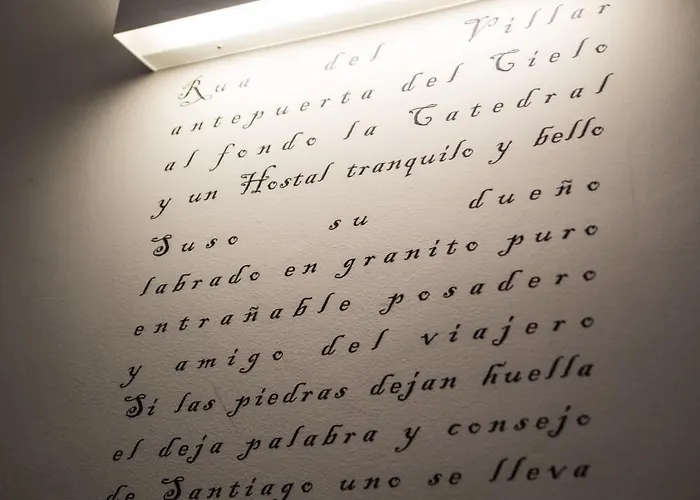 Rua del Villar
antepuerta del Cielo
al fondo la Catedral
y un Hostal tranquilo y bello
Suso su dueño
labrado en granito puro
entrañable posadero
y amigo del viajero
Si las piedras dejan huella
el deja palabra y consejo
de Santiago uno se lleva